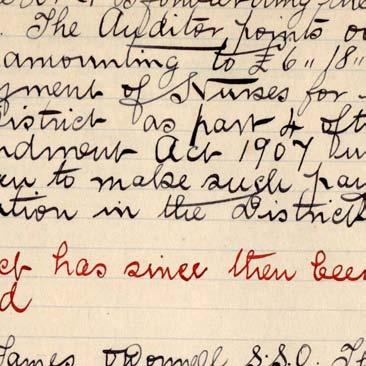 . The Auditor points ou
amounting to £6"18"
yment of Nurses for
District as part 4 of t
ndment Act 1907
to make such pay
ation in the District
ct has since then been
d
James O'Donnell S.S.O.